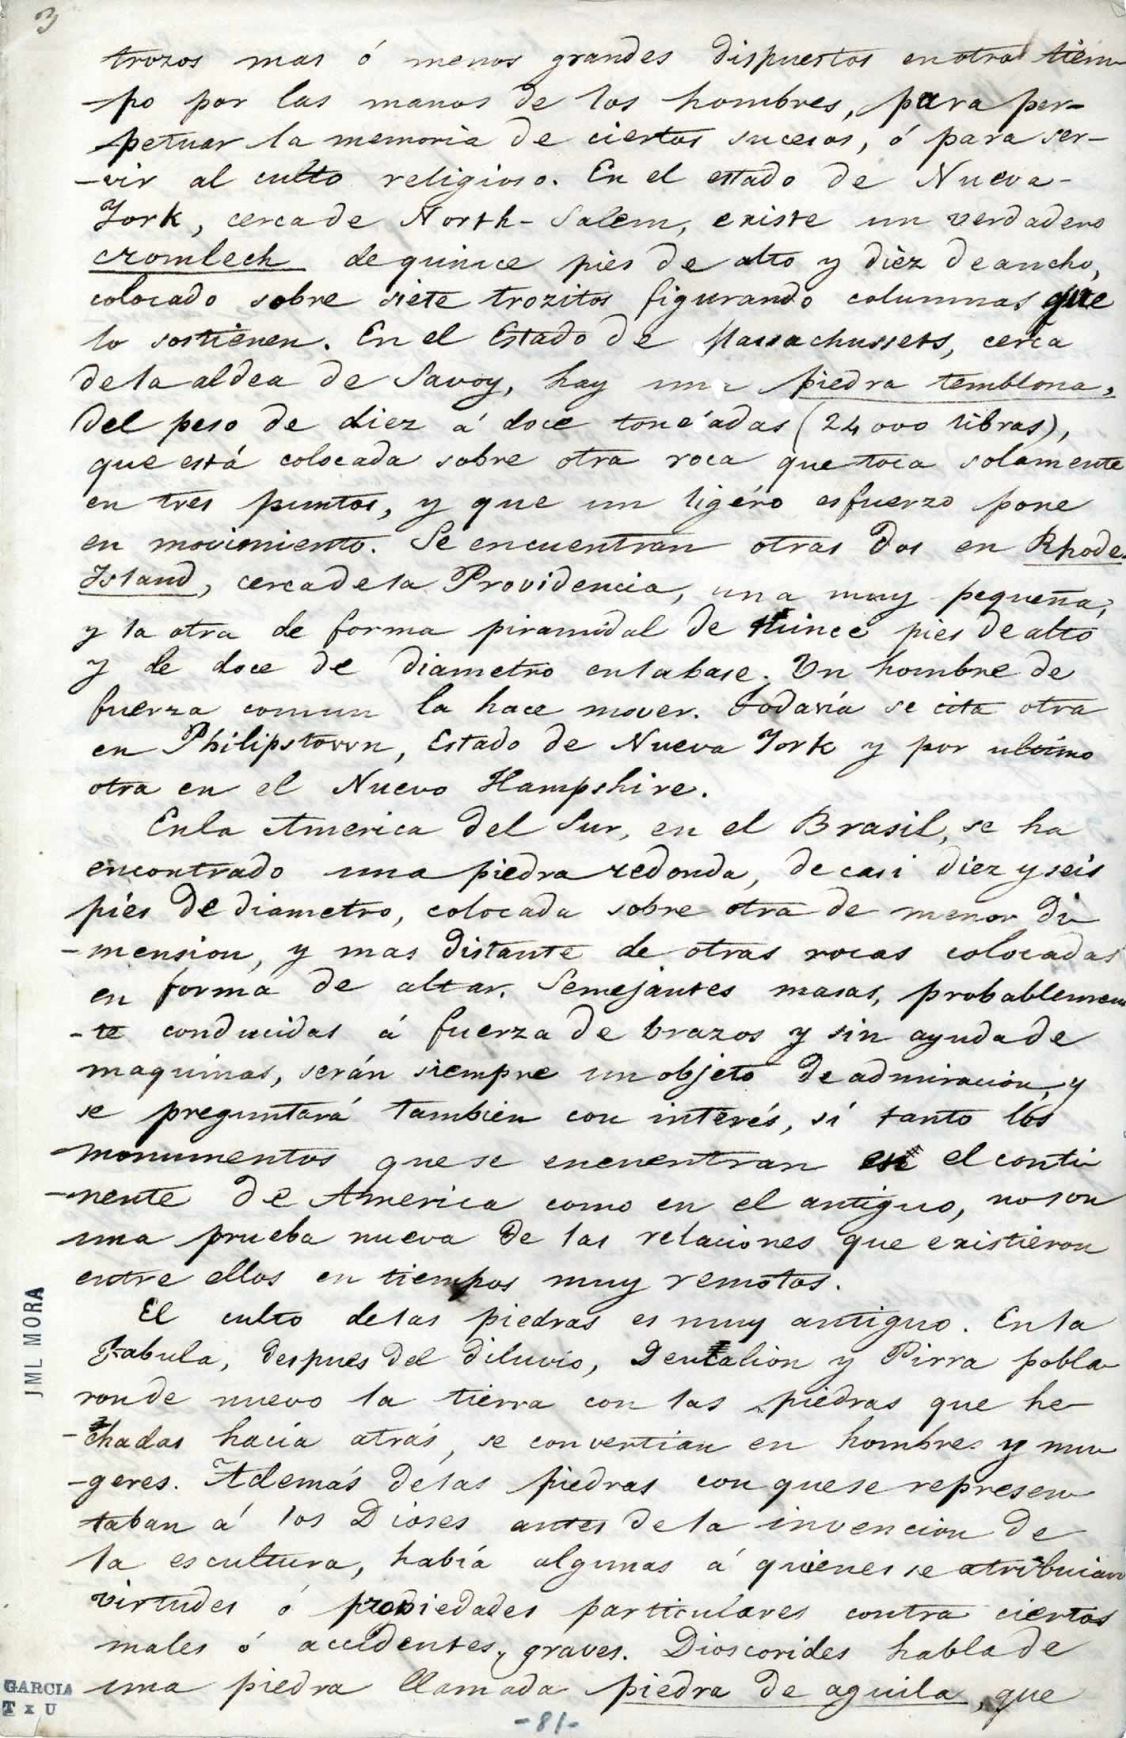 3
trozos mas ó menos grandes dispuestos en otro tiem-
po por las manos de los hombres, para per-
petuar la memoria de ciertos sucesos, ó para ser-
-vir al culto religioso. En el estado de Nueva-
York, cerca de North-Salem, existe un verdadero
cromlech de quince pies de alto y diez de ancho,
colocado sobre siete trozitos figurando columnas que
lo sostienen. En el Estado de Massachussets, cerca
de la aldea de Savoy, hay una piedra temblona,
del peso de diez á doce toneladas (24000 libras),
que está colocada sobre otra roca que toca solamente
en tres puntos, y que un ligéro esfuerzo pone
en movimiento. Se encuentran otras dos en Rhode-
Island, cerca de la Providencia, una muy pequeña,
y la otra de forma piramidal de quince pies de alto
y de doce de diametro en la base. Un hombre de
fuerza comun la hace mover. Todavía se cita otra
en Philipstown, Estado de Nueva York y por ultimo
otra en el Nuevo Hampshire.
En la America del Sur, en el Brasil, se ha
encontrado una piedra redonda, de casi diez y seis
piés de diametro, colocada sobre otra de menor di
-mension, y mas distante de otras rocas colocadas
en forma de altar. Semejantes masas, probablemen
-te conducidas á fuerza de brazos y sin ayuda de
maquinas, serán siempre un objeto de admiración, y
se preguntará tambien con interés, sí tanto los
monumentos que se encuentran en el conti
-nente de America como en el antiguo, no son
una prueba nueva de las relaciones que existieron
entre ellos en tiempos muy remotos.
El culto de las piedras es muy antiguo. En la
Fabula, despues del diluvio, Deucalion y Pirra pobla
ron de nuevo la tierra con las piedras que he-
-chadas hacia atrás, se convertian en hombres y mu
-geres. Además de las piedras con que se represen
taban á los Dioses antes de la invencion de
la escultura, había algunas á quienes se atribuian
virtudes ó propiedades particulares contra ciertos
males ó accidentes, graves. Dioscorides habla de
una piedra llamada piedra de aguila, que
-81-
JML MORA
GARCIA
T x U